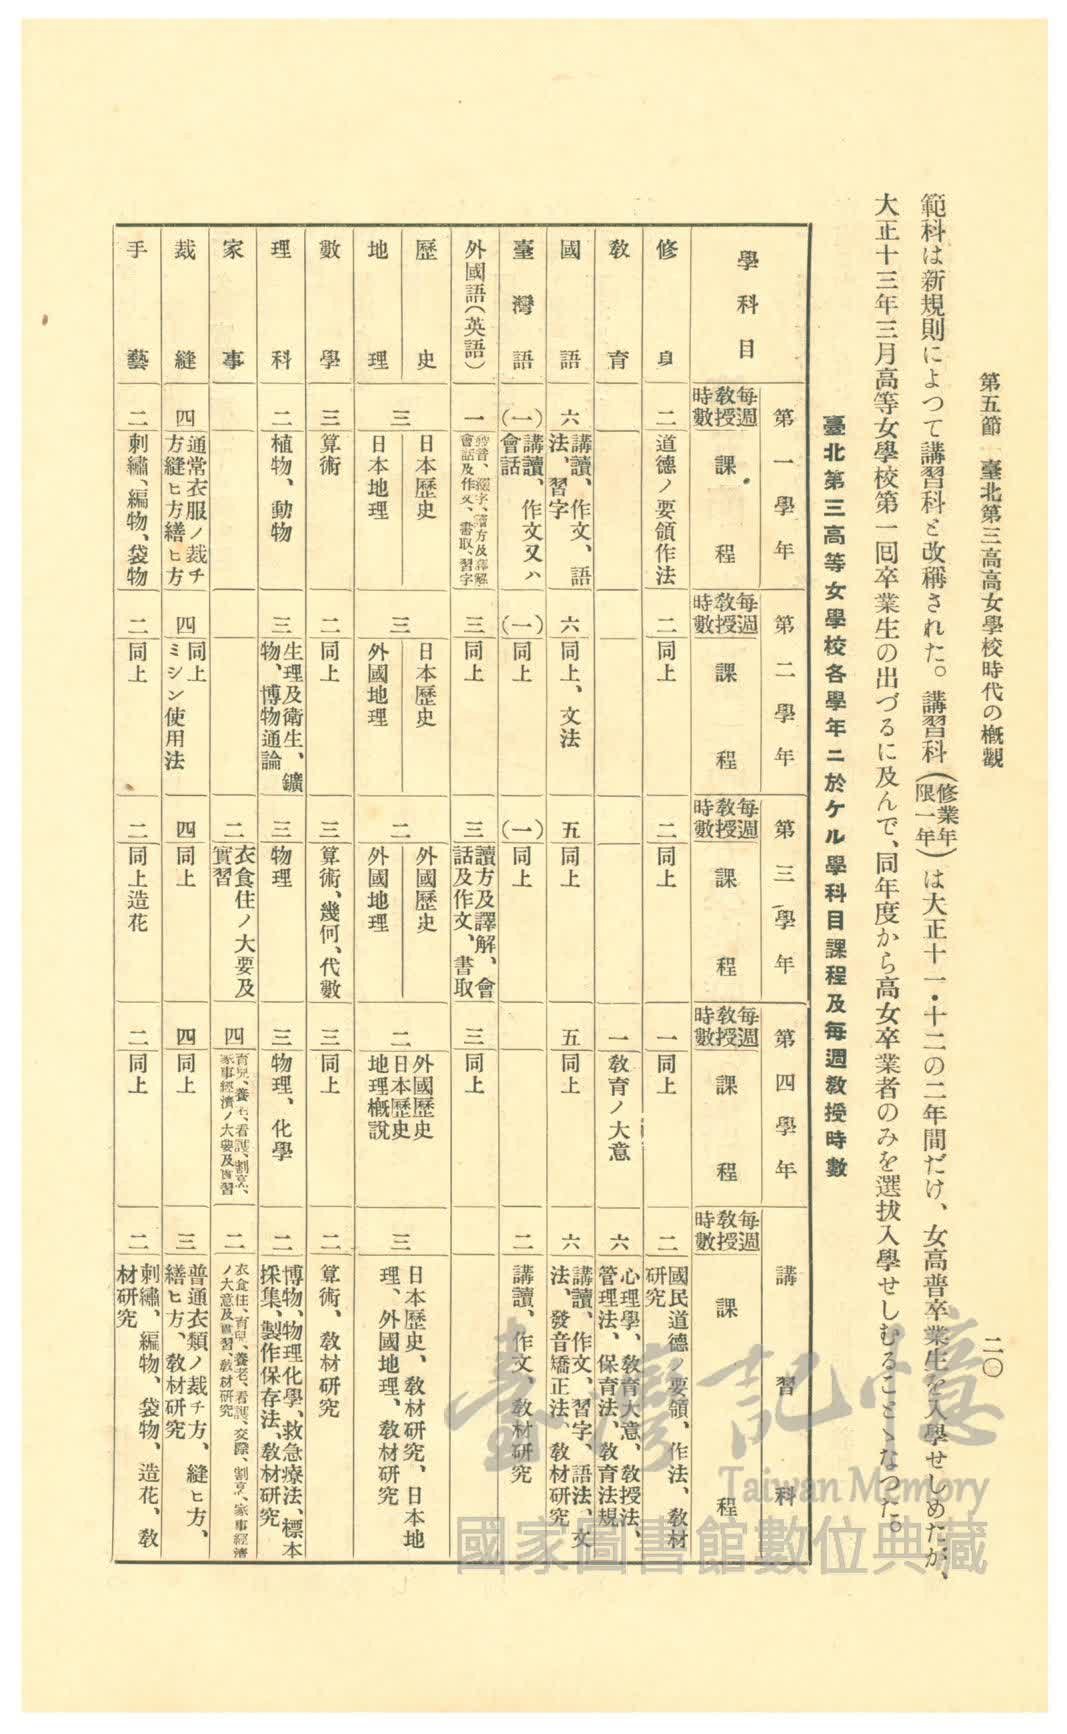 第五節　臺北第三高高女學校時代の概觀
二〇
範科は新規則によつて講習科と改稱された。講習科(修業年限一年)は大正十一・十二の二年間だけ、女高普卒業生を入學せしめたが、
大正十三年三月高等女學校第一囘卒業生の出づるに及んで、同年度から高女卒業者のみを選拔入學せしむることゝなつた。
臺北第三高等女學校各學年ニ於ケル學科目課程及每週敎授時數
學科目　第一學年　第二學年　第三學年　第四學年　講習科
每週敎授時數　課程　每週敎授時數　課程　每週敎授時數　課程　每週敎授時數　課程　每週敎授時數　課程
修身　二　道德ノ要領作法　二　同上　二　同上　一　同上　二　國民道德ノ要領、作法、敎材研究
敎育　一　敎育ノ大意　六　心理學、敎育大意、敎授法、管理法、保育法、敎育法規
國語　六　講讀、作文、語法、習字　六　同上、文法　五　同上　五　同上　六　講讀、作文、習字、語法、文法、發音矯正法、敎材研究
臺灣語　(一)　講讀、作文又ハ會話　(一)　同上　(一)　同上　二　講讀、作文、敎材研究
外國語(英語)　一　綴字、讀方及譯解、會話及作文、書取、習字　三　同上　三　讀方及譯解、會話及作文、書取　三　同上
歷史　三　日本歷史　三　日本歷史　二　外國歷史　二　外國歷史　日本歷史　地理概說　三　日本歷史、敎材研究、日本地理、外國地理、敎材研究
地理　日本地理　外國地理　外國地理
數學　三　算術　二　同上　三　算術、幾何、代數　三　同上　二　算術、敎材研究
理科　二　植物、動物　三　生理及衛生、鑛物、博物通論　三　物理　三　物理、化學　二　博物、物理化學、救急療法、標本採集、製作保存法、敎材研究
家事　二　衣食住ノ大要及實習　四　育兒、養老、看護、割烹、家事經濟ノ大要及實習　二　衣食住、育兒、養老、看護、交際、割烹、家事經濟ノ大意及實習、敎材研究
裁縫　四　通常衣服ノ裁チ方縫ヒ方繕ヒ方　四　同上　ミシン使用法　四　同上　四　同上　三　普通衣類ノ裁チ方、縫ヒ方、繕ヒ方、敎材研究
手藝　二　刺繡、編物、袋物　二　同上　二　同上造花　二　同上　二　刺繡、編物、袋物、造花、敎材研究
臺灣記憶
Taiwan Memory
國家圖書館數位典藏